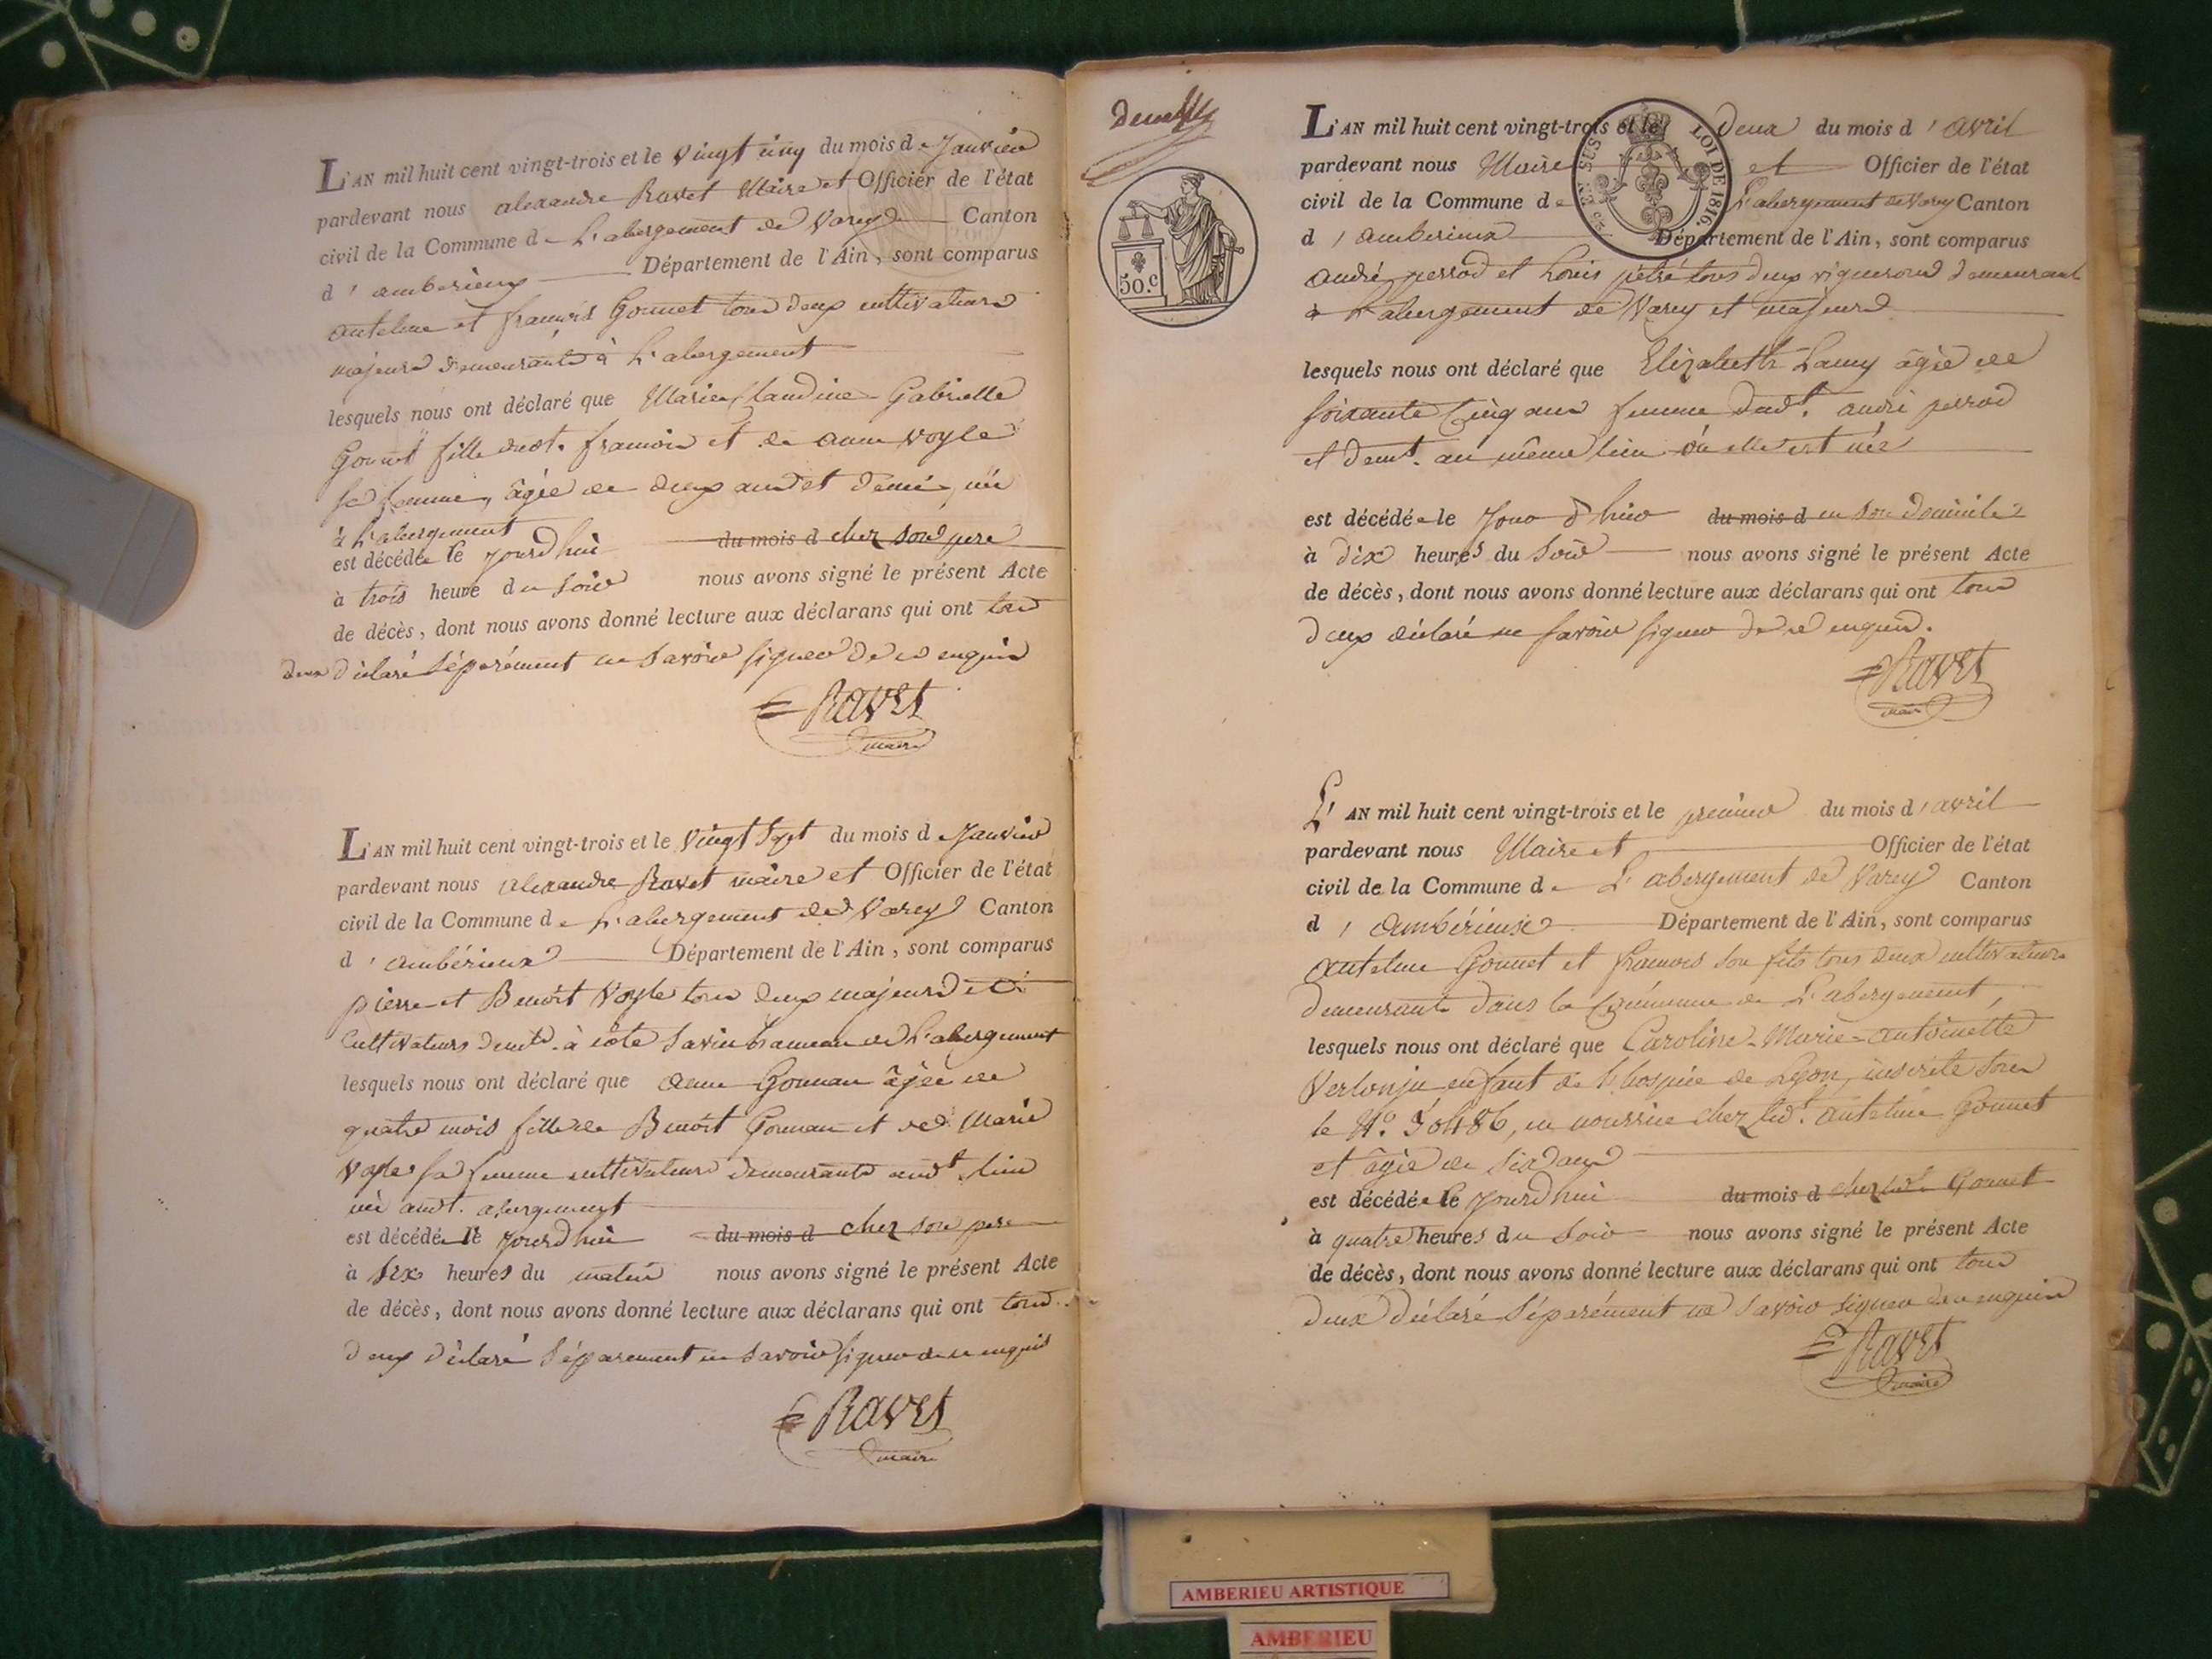 L'AN mil huit cent vingt-trois et le vingt cinq du mois de Janvier
pardevant nous alexandre Ravet Maire et Officier de l'état
civil de la Commune de L'abergement de Varey Canton
d'amberieux Département de l'Ain, sont comparus
antelme et françois Gonnet tous deux cultivateurs
majeurs demeurants à L'abergement
lesquels nous ont déclaré que Marie Claudine Gabrielle
Gonnet fille dudt. françois et de anne voyle
sa femme, âgée de deux ans et demi, née
à L'abergement
est décédée le jourd'hui du mois d chez son pere
à trois heure du soir nous avons signé le présent Acte
de décès, dont nous avons donné lecture aux déclarans qui ont tous
deux déclaré séparément ne savoir signer de ce enquis
Ravet
maire
L'AN mil huit cent vingt-trois et le vingt sept du mois de Janvier
pardevant nous alexandre Ravet maire et Officier de l'état
civil de la Commune de L'abergement de Varey Canton
d'ambérieux Département de l'Ain, sont comparus
pierre et Benoit Voyle tous deux majeurs et
Cultivateurs demts. à côte savin hameau de L'abergement
lesquels nous ont déclaré que anne Gonnan âgée de
quatre mois fille de Benoit Gonnan et de Marie
Voyle sa femme cultivateurs demeurants audt. lieu
née audt. abergement
est décédée le jourd'hui du mois d chez son pere
à six heures du matin nous avons signé le présent Acte
de décès, dont nous avons donné lecture aux déclarans qui ont tous
deux déclaré séparement ne savoir signer de ce enquis
Ravet
maire
50.C
EN SUS
LOI DE 1816.
L'AN mil huit cent vingt-trois et le Deux du mois d'avril
pardevant nous Maire et Officier de l'état
civil de la Commune de L'abergement de Varey Canton
d'amberieux Département de l'Ain, sont comparus
andré perrod et Louis tous deux vignerons demeurant
à L'abergement de Varey et majeurs
lesquels nous ont déclaré que Elizabeth Lamy âgée de
soixante Cinq ans femme dudt. andré perrod
et demt. au même lieu où elle est née
est décédée le Jour d'hui du mois d en son domicile
à dix heures du soir nous avons signé le présent Acte
de décès, dont nous avons donné lecture aux déclarans qui ont tous
deux déclaré ne savoir signer de ce enquis.
Ravet
maire
L'AN mil huit cent vingt-trois et le premier du mois d'avril
pardevant nous Maire et Officier de l'état
civil de la Commune de L'abergement de Varey Canton
d'ambérieux Département de l'Ain, sont comparus
antelme Gonnet et françois son fils tous deux cultivateurs
demeurants dans la Commune de L'abergement,
lesquels nous ont déclaré que Caroline-Marie-antoinette
Verlonju enfant de l'hospice de Lyon, inscrite sous
le N.º 30486, en nourrice chez ledt. antelme Gonnet
et âgée de six ans
est décédée le jourd'hui du mois d chez ledt. Gonnet
à quatre heures du soir nous avons signé le présent Acte
de décès, dont nous avons donné lecture aux déclarans qui ont tous
deux déclaré séparément ne savoir signer de ce enquis
Ravet
maire
AMBERIEU ARTISTIQUE
AMBERIEU